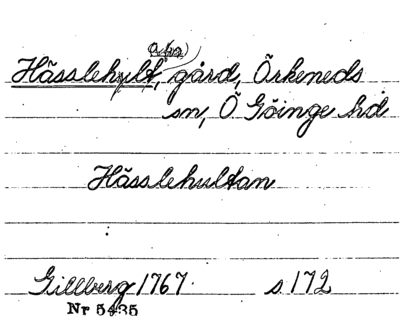 a(na)
Hässlehult, gård, Örkeneds
sn, Ö Göinge hd
Hässlehultan
Gillberg 1767. s 172
Nr 5435